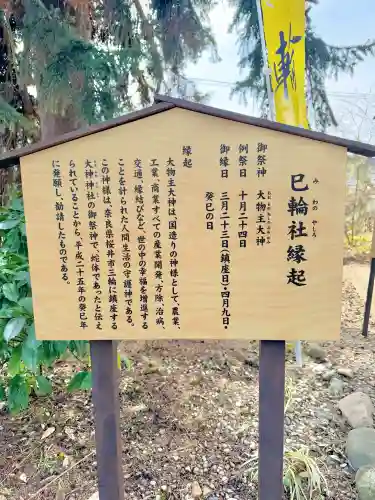 巳輪社縁起
み わの やしろ
御祭神 大物主大神
おおものぬしのおおかみ
例祭日 十月二十四日
御縁日 三月二十三日(鎮座日)・四月九日・
癸巳の日
縁起
大物主大神は、国造りの神様として、農業、
工業、商業すべての産業開発、方除、治病、
交通、縁結びなど、世の中の幸福を増進する
ことを計られた人間生活の守護神である。
この神様は、奈良県桜井市三輪に鎮座する
大神神社の御祭神で、蛇体であったと伝え
られていることから、平成二十五年の癸巳年
に発願し、勧請したものである。